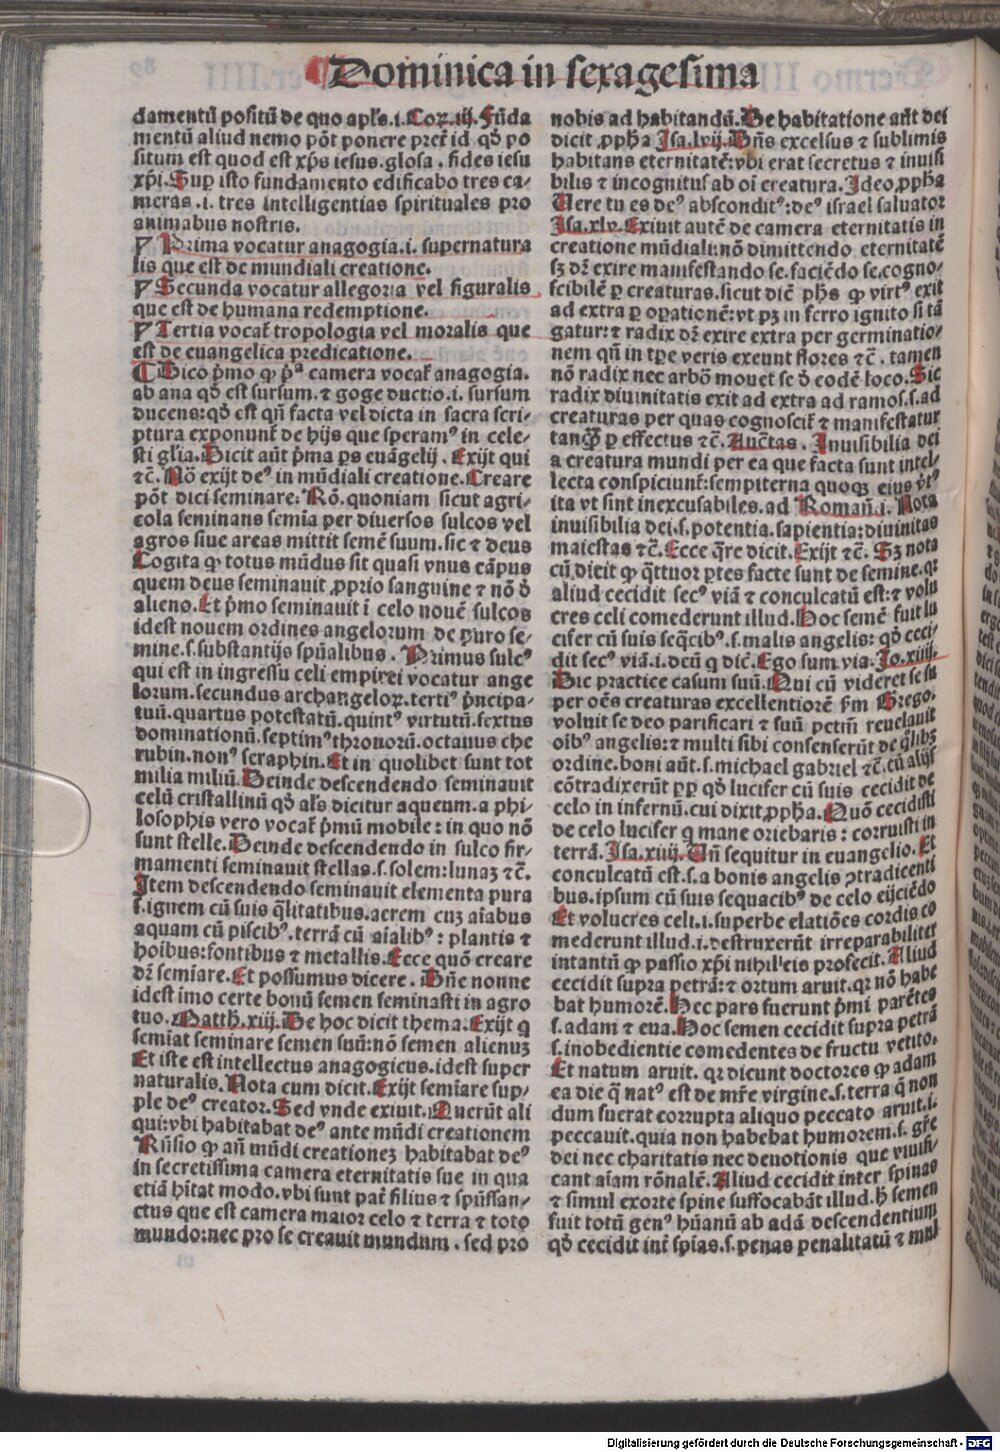 Dominica in sexagesima
damentū positū de quo apl's.i. Coꝝ.iij. Fūda
mentū aliud nemo pōt ponere preť id qḋ po
situm est quod est xp̄s iesus.glosa. fides iesu
xp̄i. Sup isto fundamento edificabo tres ca⸗
meras.i. tres intelligentias spirituales pro
animabus nostris.
Prima vocatur anagogia.i. supernatura
lis que est de mundiali creatione.
Secunda vocatur allegoria vel figuralis
que est de humana redemptione.
Tertia vocať tropologia vel moralis que
est de euangelica predicatione.
Dico p̄mo ꝙ p̄ª camera vocať anagogia.
ab ana qḋ est sursum. ⁊ goge ductio.i. sursum
ducens:qḋ est qn̄ facta vel dicta in sacra scri⸗
ptura exponunť de hijs que speramꝰ in cele⸗
sti gl'ia. Dicit aūt p̄ma ps euāgelij. Exijt qui
⁊c̄. Nō exijt deꝰ in mūdiali creatione. Creare
pōt dici seminare: Rō.quoniam sicut agri⸗
cola seminans semīa per diuersos sulcos vel
agros siue areas mittit semē suum.sic ⁊ deus
Cogita ꝙ totus mūdus sit quasi vnus cāpus
quem deus seminauit ꝓprio sanguine ⁊ nō ḋ
alieno. Et p̄mo seminauit ī celo nouē sulcos
idest nouem ordines angelorum de puro se⸗
mine.s.substantijs spūalibus. Primus sulcꝰ
qui est in ingressu celi empirei vocatur ange
lorum.secundus archangeloꝝ.tertiꝰ p̄ncipa⸗
tuū.quartus potestatū.quintꝰ virtutū.sextus
dominationū.septimꝰ thronorū.octauus che
rubin.nonꝰ seraphin. Et in quolibet sunt tot
milia miliū. Deinde descendendo seminauit
celū cristallinū qḋ al's dicitur aqueum.a phi⸗
losophis vero vocať p̄mū mobile: in quo nō
sunt stelle. Deinde descendendo in sulco fir⸗
mamenti seminauit stellas.s.solem:lunaꝫ ⁊c̄.
Item descendendo seminauit elementa pura
s.ignem cū suis q̄litatibus.aerem cuꝫ aīabus
aquam cū piscibꝰ.terrā cū aīalibꝰ: plantis ⁊
hoībus:fontibus ⁊ metallis. Ecce quō creare
dꝫ semīare. Et possumus dicere. Dn̄e nonne
idest imo certe bonū semen seminasti in agro
tuo. Matth.xiij. De hoc dicit thema. Exijt q
semīat seminare semen suū:nō semen alienuꝫ
Et iste est intellectus anagogicus.idest super
naturalis. Nota cum dicit. Exijt semīare sup⸗
ple deꝰ creator. Sed vnde exiuit. Querūt ali
qui:vbi habitabat deꝰ ante mūdi creationem
Rn̄sio ꝙ an̄ mūdi creationeꝫ habitabat deꝰ
in secretissima camera eternitatis sue in qua
etiā hītat modo.vbi sunt pať filius ⁊ spūssan⸗
ctus que est camera maior celo ⁊ terra ⁊ toto
mundo:nec pro se creauit mundum. sed pro
nobis ad habitandū. De habitatione aūt dei
dicit ꝓpħa Isa.lvij. Dn̄s excelsus ⁊ sublimis
habitans eternitatē:vbi erat secretus ⁊ inuisi
bilis ⁊ incognitus ab oī creatura. Ideo ꝓpħa
Uere tu es deꝰ absconditꝰ:deꝰ israel saluator
Isa.xlv. Exiuit autē de camera eternitatis in
creatione mūdiali:nō dimittendo eternitatē
sꝫ dꝫ exire manifestando se.faciēdo se.cogno⸗
scibilē p creaturas.sicut dic̄ phs ꝙ virtꝰ exit
ad extra p operationē:vt pꝫ in ferro ignito si tā
gatur:⁊ radix dꝫ exire extra per germinatio⸗
nem qn̄ in tp̄e veris exeunt flores ⁊c̄. tamen
nō radix nec arbō mouet se ḋ eodē loco. Sic
radix diuinitatis exit ad extra ad ramos.s.ad
creaturas per quas cognosciť ⁊ manifestatur
tanq̄ꝫ p effectus ⁊c̄. Auc̄tas. Inuisibilia dei
a creatura mundi per ea que facta sunt intel⸗
lecta conspiciunť:sempiterna quoqꝫ eius v̄tꝰ
ita vt sint inexcusabiles.ad Roman̄.i. Nota
inuisibilia dei.s.potentia.sapientia:diuinitas
maiestas ⁊c̄. Ecce q̄re dicit. Exijt ⁊c̄. Sꝫ nota
cū dicit ꝙ q̄ttuor ptes facte sunt de semine.qꝛ
aliud cecidit secꝰ viā ⁊ conculcatū est:⁊ volu
cres celi comederunt illud. Hoc semē fuit lu
cifer cū suis seq̄cibꝰ.s.malis angelis: qḋ ceci⸗
dit secꝰ viā.i.deū q dic̄. Ego sum via. Jo.xiiij.
Hic practice casum suū. Qui cū videret se su
per oēs creaturas excellentiorē p̄m Grego.
voluit se deo parificari ⁊ suū petm̄ reuelauit
oībꝰ angelis:⁊ multi sibi consenserūt de q̄libꝫ
ordine.boni aūt.s.michael gabriel ⁊c̄.cū alijs
cōtradixerūt pp qḋ lucifer cū suis cecidit de
celo in infernū.cui dixit ꝓpħa. Quō cecidisti
de celo lucifer q mane oriebaris: corruisti in
terrā. Isa.xiiij. Un̄ sequitur in euangelio. Et
conculcatū est.s.a bonis angelis ↄtradicenti
bus.ipsum cū suis sequacibꝰ de celo eijciēdo
Et volucres celi.i.superbe elatiōes cordis co
mederunt illud.i.destruxerūt irreparabiliter
intantū ꝙ passio xp̄i nihil'eis profecit. Aliud
cecidit supra petrā:⁊ ortum aruit.qꝛ nō habe
bat humorē. Hec pars fuerunt p̄mi parētes
s.adam ⁊ eua. Hoc semen cecidit supra petrā
s.inobedientie comedentes de fructu vetito.
Et natum aruit. qꝛ dicunt doctores ꝙ adam
ea die q̄ natꝰ est de mr̄e virgine.s.terra q̄ non
dum fuerat corrupta aliquo peccato aruit.i.
peccauit.quia non habebat humorem.s. gr̄e
dei nec charitatis nec deuotionis que viuifi⸗
cant aīam rōnalē. Aliud cecidit inter spinas
⁊ simul exorte spine suffocabāt illud.ħ semen
fuit totū genꝰ hūanū ab adā descendentium
qḋ cecidit inť spīas.s.penas penalitatū ⁊ mul
Digitalisierung gefördert durch die Deutsche Forschungsgemeinschaft - DFG